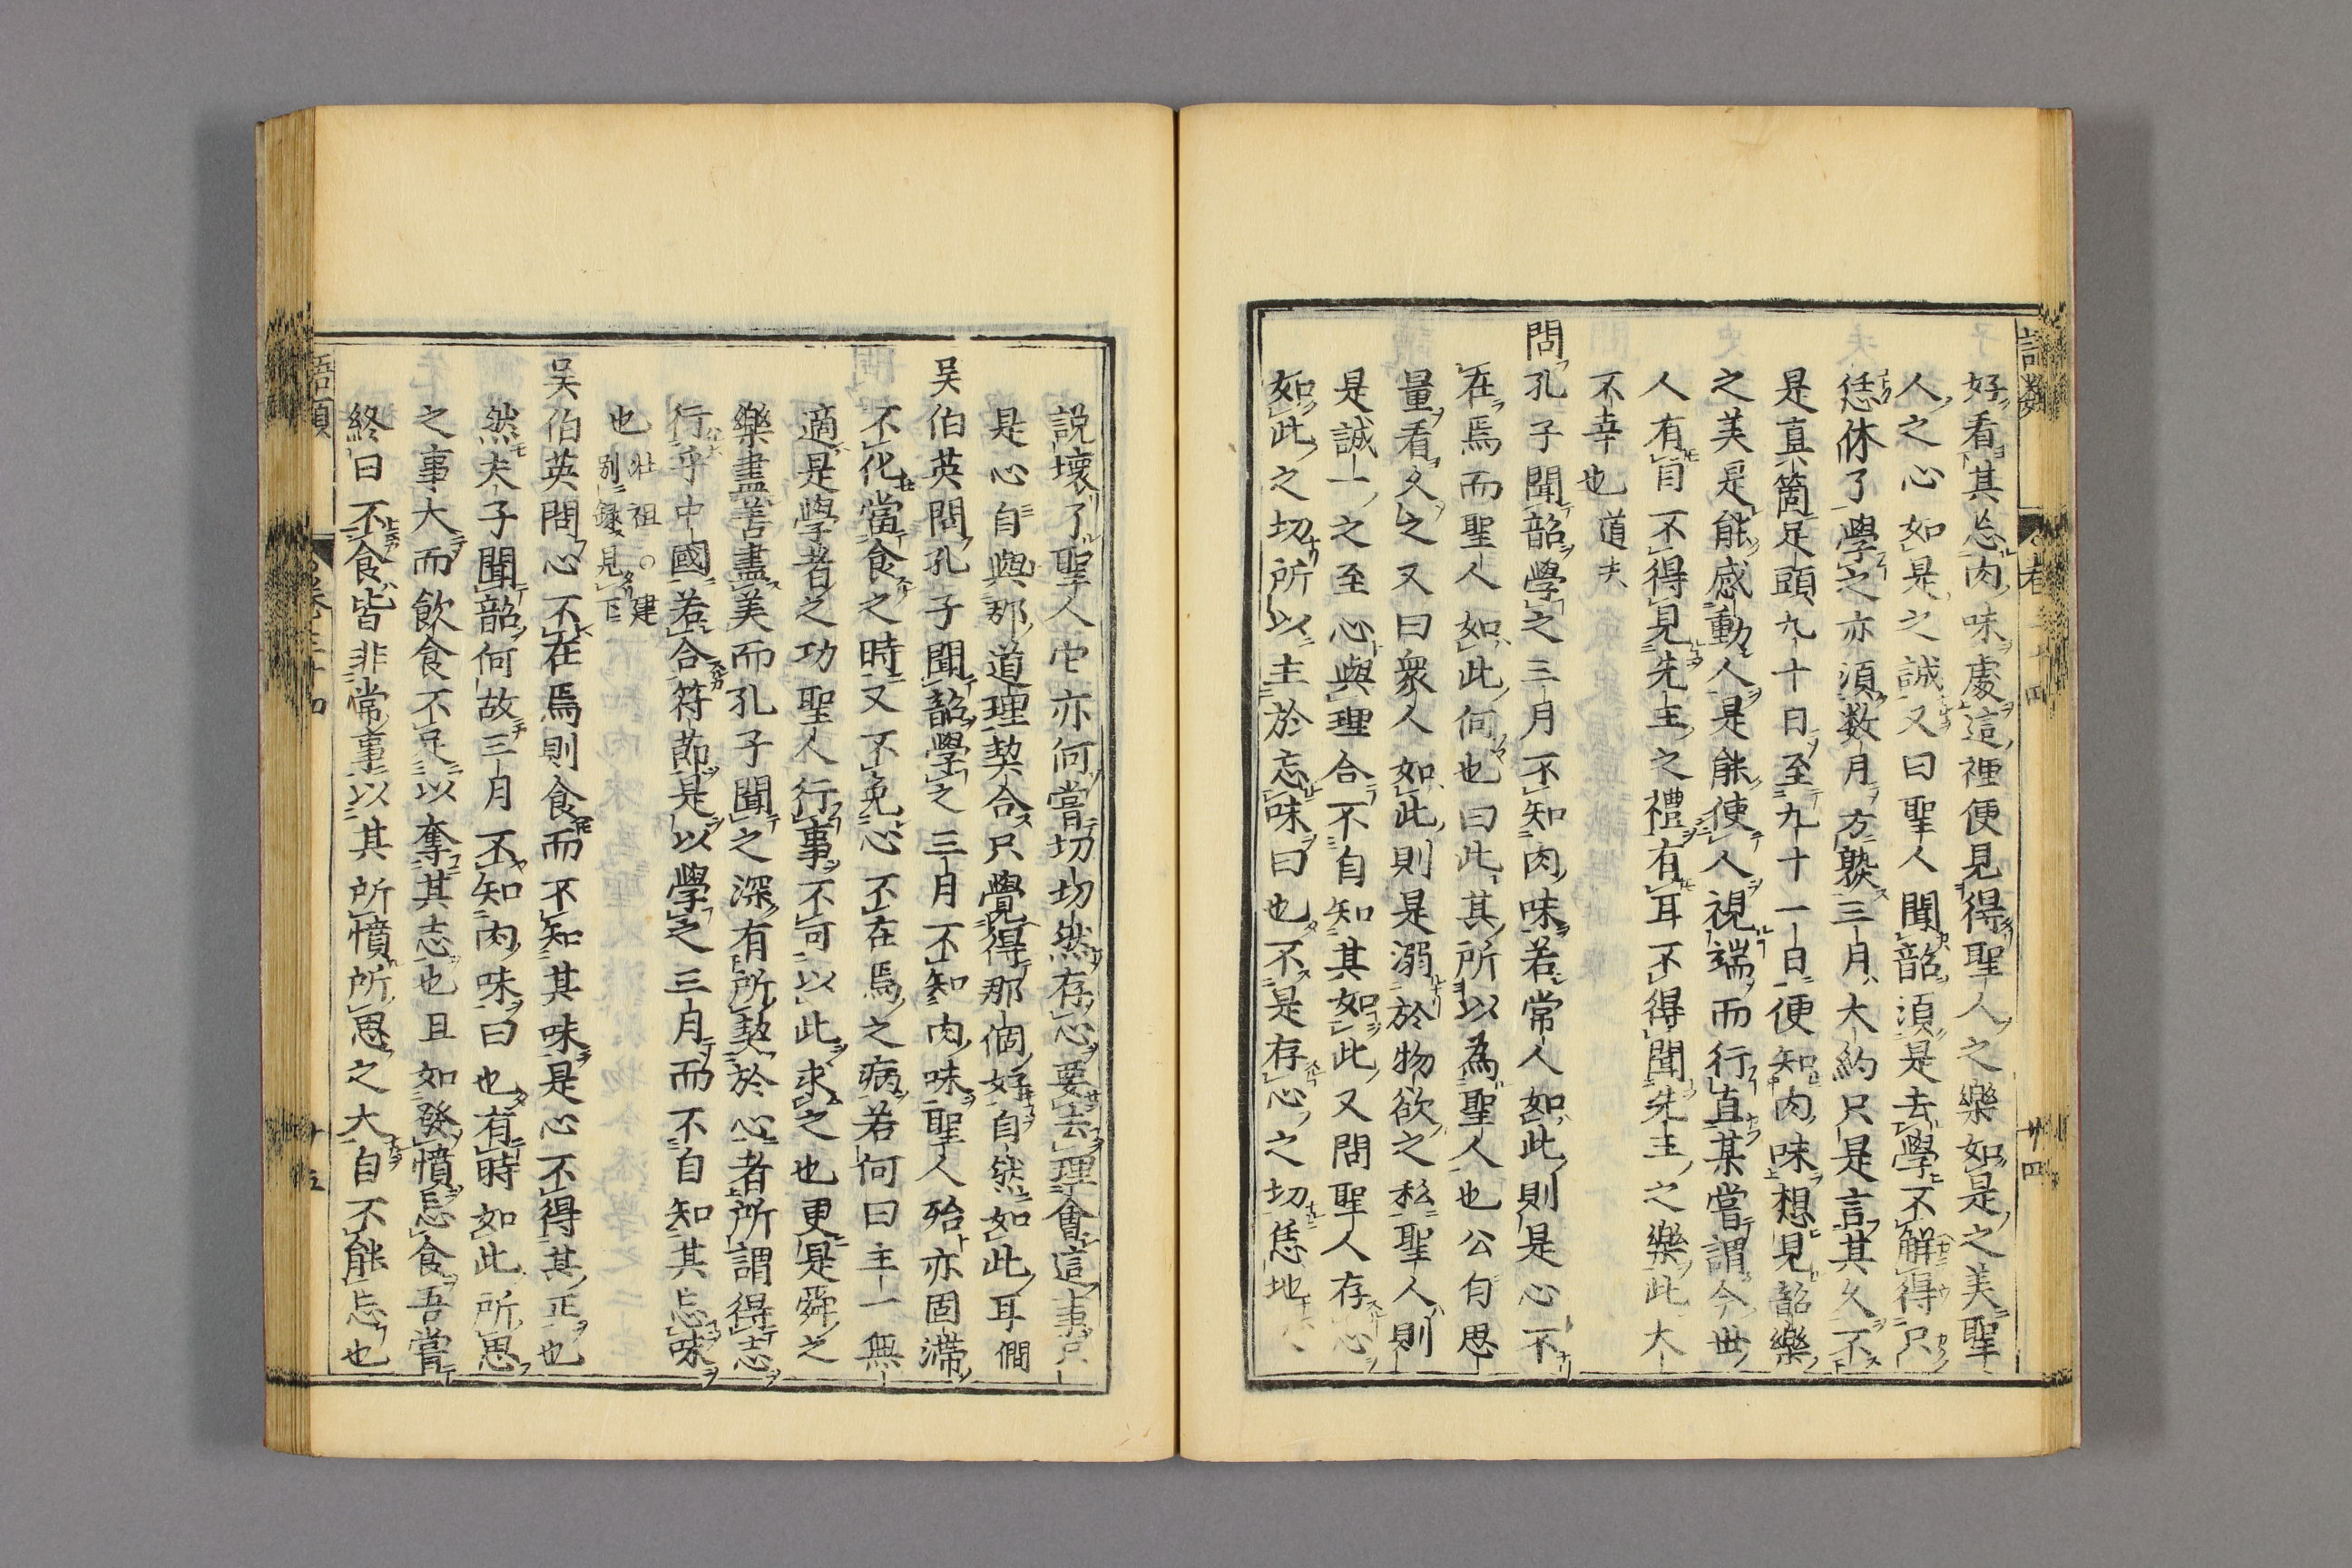 好看其忘肉味處這裡便見得聖人之樂如是之美聖
人之心如是之誠又曰聖人聞韶須是去學不解得只
恁休了學之亦須数月方熟三月大約只是言其久不
是真箇足頭九十日至九十一日便知肉味想見韶樂
之美是能感動人是能使人視端而行直某嘗謂今世
人有目不得見先王之禮有耳不得聞先王之樂此大
不幸也道夫
問孔子聞韶學之三月不知肉味若常人如此則是心不
在焉而聖人如此何也曰此其所以為聖人也公自思
量看久之又曰衆人如此則是溺於物欲之私聖人則
是誠一之至心與理合不自知其如此又問聖人存心
如此之切所以至於忘味曰也不是存心之切恁地
說壞了聖人它亦何嘗切切然存心要去理會這事只
是心自與那道理契合只覺得那個好自然如此耳僩
吴伯英問孔子聞韶學之三月不知肉味聖人殆亦固滯
不化當食之時又不免心不在焉之病若何曰主一無
適是學者之功聖人行事不可以此求之也更是舜之
樂盡善盡美而孔子聞之深有所契於心者所謂得志
行乎中國若合符節是以學之三月而不自知其忘味
也壮祖○建別録見下
吴伯英問心不在焉則食而不知其味是心不得其正也
然夫子聞韶何故三月不知肉味曰也有時如此所思
之事大而飲食不足以奪其志也且如發憤忘食吾嘗
終日不食皆非常事以其所憤所思之大自不能忘也
語類